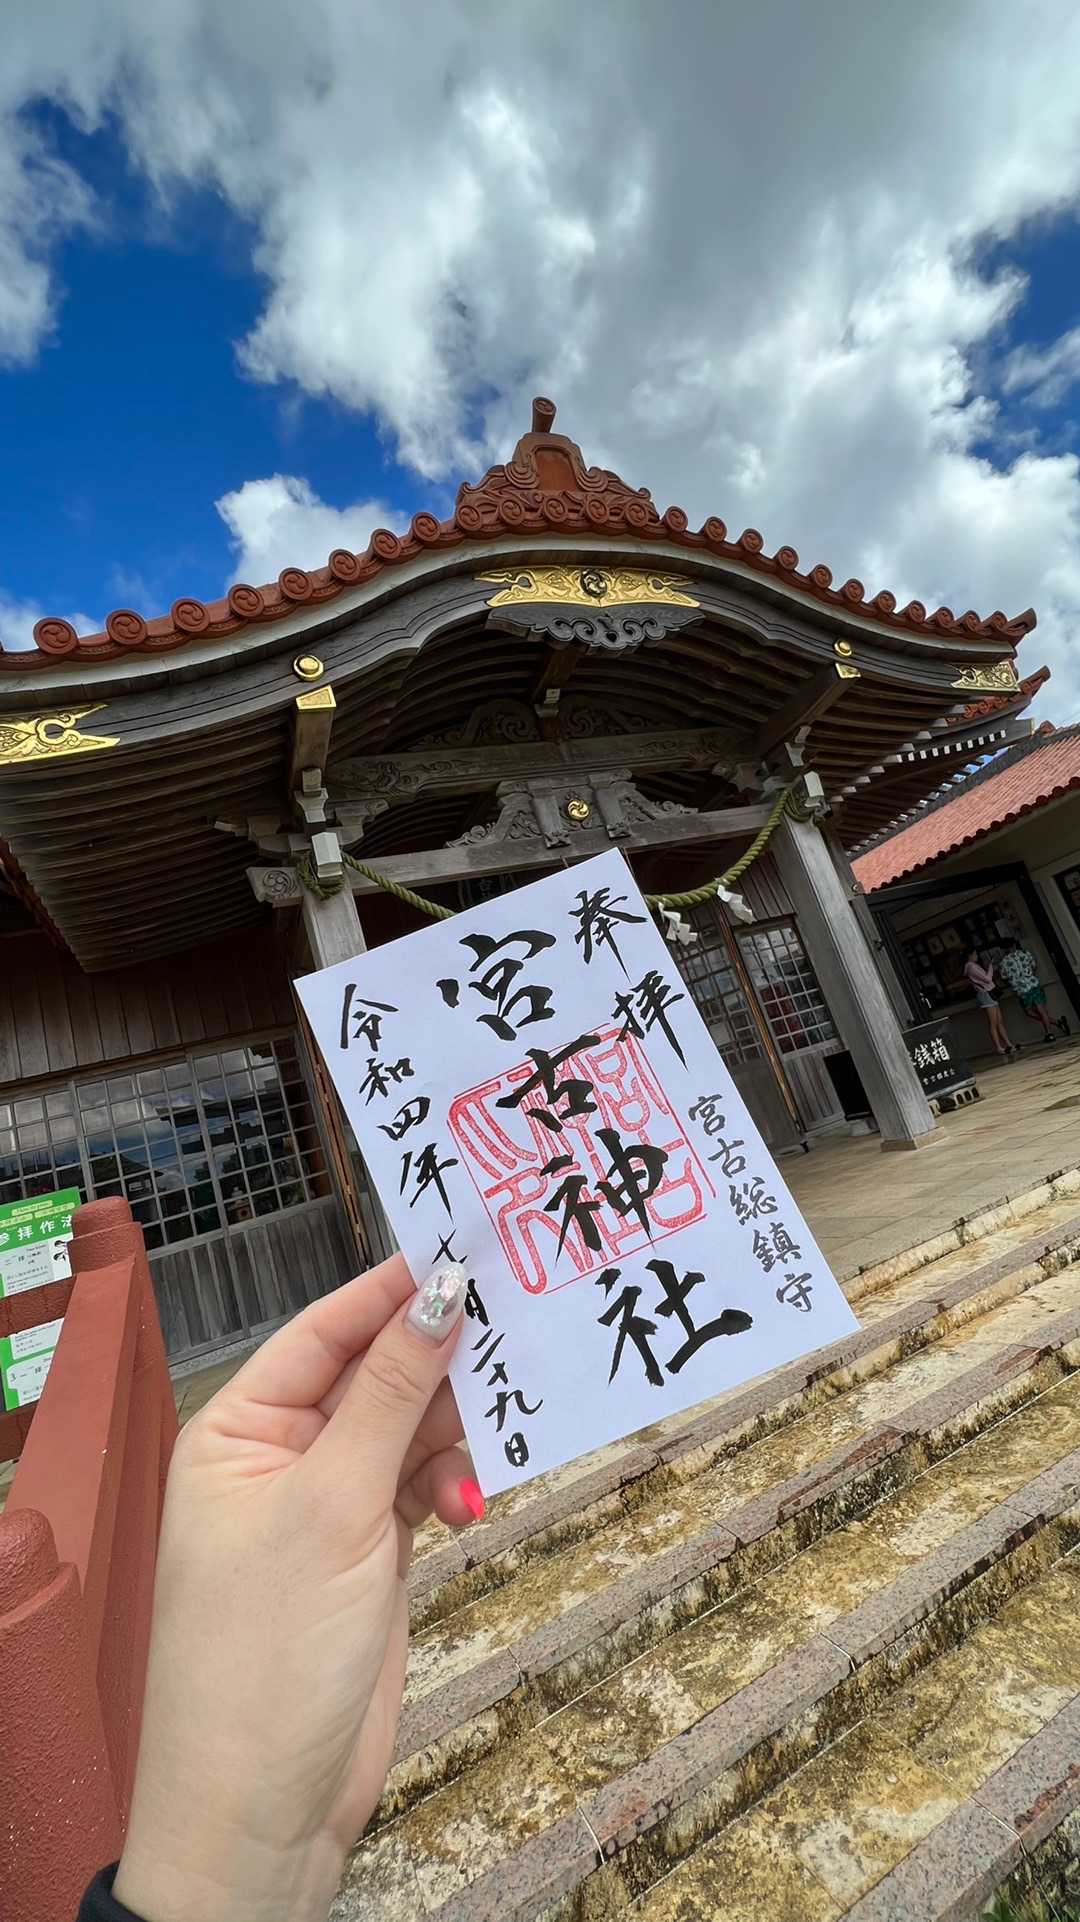 奉拝
宮古総鎮守
宮古神社
令和四年七月二十九日
銭箱
参拝作法